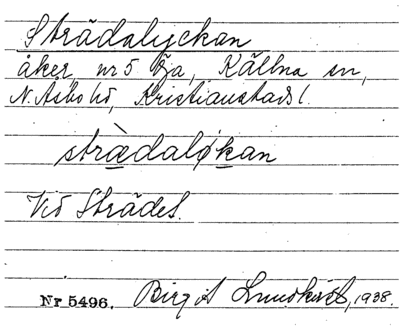 Strädalyckan
åker, nr 5 Ya, Källna sn,
N. Åsbo hd, Kristianstads l.
strædaløkan
Vid Strädet.
Nr 5496. Birgit Lundkvist, 1938.